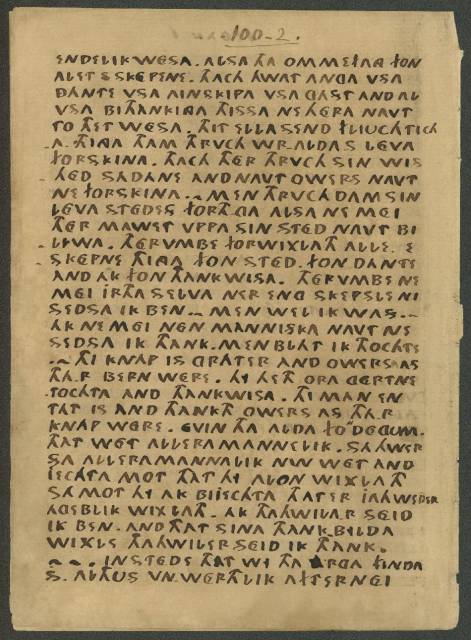 100-2.
ENDELIK WESA. ALSA THA OMMELAG FON
ALET ESKEPENE. THACH HWAT ANGA VSA
DANTE VSA AINSKIPA VSA GAST AND AL
VSA BITHANKINGA THISSA NE HERA NAVT
TO THET WESA. THIT ELLA SEND FLIUCHTICH
A. THINGA THAM THRVCH WRALDAS LEVA
FORSKINA. THACH THER THRVCH SIN WIS
HED SADANE AND NAVT OWERS NAVT
NE FORSKINA. ~ MEN THRVCH DAM SIN
LEVA STEDES FORTHGA ALSA NE MEI
THER NAWET VPPA SIN STED NAVT BI
LIWA. THERVMBE FORWIXLATH ALLE E
SKEPNE THINGA FON STED. FON DANTE
AND AK FON THANKWISA. THERVMBE NE
MEI IRTHA SELVA NER ENG SKEPSLE NI
SEDSA IK BEN ~ MEN WEL IK WAS. ~
AK NE MEI NEN MANNISKA NAVT NE
SEDSA IK THANK. MEN BLAT IK THOCHTE
~ THI KNAP IS GRATER AND OWERS AS
THA.R BERN WERE. HI HETH ORA GERTNE
TOCHTA AND THANKWISA. THI MAN EN
TAT IS AND THANKTH OWERS AS THA.R
KNAP WERE. EVIN THA ALDA FON DEGUM.
THAT WET ALLERAMANNELIK. SAHWER
SA ALLERAMANNALIK NW WET AND
IECHTA MOT THAT HI ALON WIXLATH
SA MOT HI AK BIIECHTA THAT ER IAHWEDER
AGEBLIK WIXLATH. AK THAHWILAR SEID
IK BEN. AND THAT SINA THANK BYLDA
WIXLE THAHWILER SEID IK THANK.
~ ~ . INSTEDE THAT WI THA ERGA FINDA
S. ALTHUS VNWERTHLIK AFTERNEI